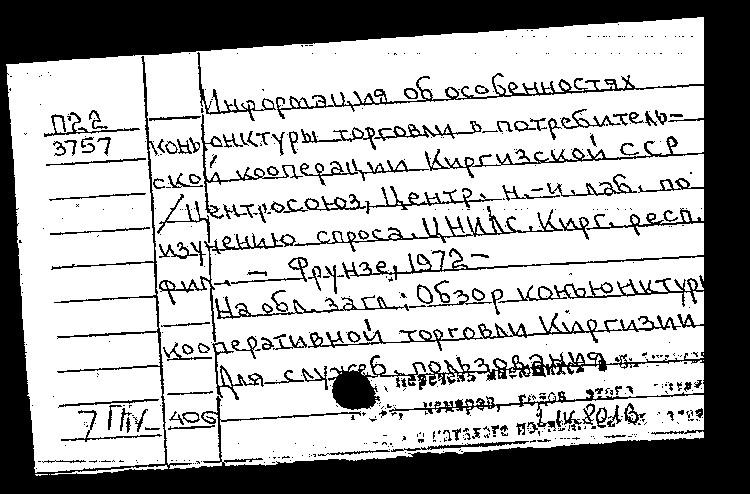 Информация об особенностях
П22
3757
конъюнктуры торговли в потребитель-
ской кооперации Киргизской ССР
/Центросоюз, Центр. н.-и. лаб. по
изучению спроса. ЦНИЛС. Кирг. респ.
фил. – Фрунзе, 1972 –
На обл. загл.: Обзор конъюнктуры
кооперативной торговли Киргизии
Для служеб. пользования
Перечень имеющихся в
номеров, годов этого
7 ПIV 406
в каталоге